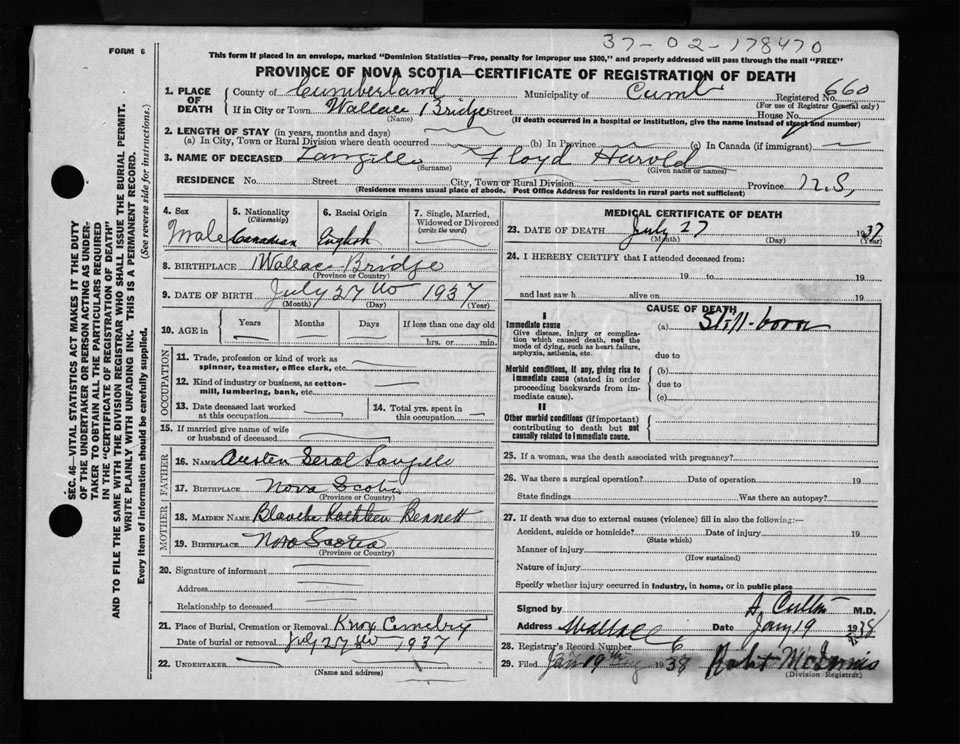 37-02-178470
FORM 6
This form if placed in an envelope, marked "Dominion Statistics—Free, penalty for improper use $300," and properly addressed will pass through the mail "FREE"
PROVINCE OF NOVA SCOTIA—CERTIFICATE OF REGISTRATION OF DEATH
SEC. 46—VITAL STATISTICS ACT MAKES IT THE DUTY
OF THE UNDERTAKER OR PERSON ACTING AS UNDER-
TAKER TO OBTAIN ALL THE PARTICULARS REQUIRED
IN THE "CERTIFICATE OF REGISTRATION OF DEATH"
AND TO FILE THE SAME WITH THE DIVISION REGISTRAR WHO SHALL ISSUE THE BURIAL PERMIT.
WRITE PLAINLY WITH UNFADING INK. THIS IS A PERMANENT RECORD.
Every item of information should be carefully supplied. (See reverse side for instructions.)
1. PLACE OF DEATH
County of Cumberland Municipality of Cumb Registered No. 660
(For use of Registrar General only)
If in City or Town Wallace Bridge Street House No.
(Name) (If death occurred in a hospital or institution, give the name instead of street and number)
2. LENGTH OF STAY (in years, months and days)
(a) In City, Town or Rural Division where death occurred (b) In Province (c) In Canada (if immigrant)
3. NAME OF DECEASED Langille Floyd Harold
(Surname) (Given name or names)
RESIDENCE No. Street City, Town or Rural Division Province N.S.
(Residence means usual place of abode. Post Office Address for residents in rural parts not sufficient)
4. Sex Male
5. Nationality (Citizenship) Canadian
6. Racial Origin English
7. Single, Married, Widowed or Divorced (write the word)
8. BIRTHPLACE Wallace Bridge
(Province or Country)
9. DATE OF BIRTH July 27th 1937
(Month) (Day) (Year)
10. AGE in Years Months Days If less than one day old
hrs. or min.
OCCUPATION
11. Trade, profession or kind of work as
spinner, teamster, office clerk, etc.
12. Kind of industry or business, as cotton-
mill, lumbering, bank, etc.
13. Date deceased last worked
at this occupation
14. Total yrs. spent in
this occupation
15. If married give name of wife
or husband of deceased
FATHER
16. NAME Austen Langille
17. BIRTHPLACE Nova Scotia
(Province or Country)
MOTHER
18. MAIDEN NAME Blanche Kathleen Bennett
19. BIRTHPLACE Nova Scotia
(Province or Country)
20. Signature of informant
Address
Relationship to deceased
21. Place of Burial, Cremation or Removal Knox Cemetery
Date of burial or removal July 27th 1937
22. UNDERTAKER
(Name and address)
MEDICAL CERTIFICATE OF DEATH
23. DATE OF DEATH July 27 1937
(Month) (Day) (Year)
24. I HEREBY CERTIFY that I attended deceased from:
19 to 19
and last saw h alive on 19
CAUSE OF DEATH
I
Immediate cause (a) Still-born
Give disease, injury or complica-
tion which caused death, not the
mode of dying, such as heart failure,
asphyxia, asthenia, etc. due to
Morbid conditions, if any, giving rise to (b)
immediate cause (stated in order due to
proceeding backwards from im-
mediate cause). (c)
II
Other morbid conditions (if important)
contributing to death but not
causally related to immediate cause.
25. If a woman, was the death associated with pregnancy?
26. Was there a surgical operation? Date of operation 19
State findings Was there an autopsy?
27. If death was due to external causes (violence) fill in also the following:—
Accident, suicide or homicide? Date of injury 19
(State which)
Manner of injury
(How sustained)
Nature of injury
Specify whether injury occurred in industry, in home, or in public place
Signed by M.D.
Address Wallace Date Jany 19 1938
28. Registrar's Record Number 6
29. Filed Jan 19th 1938 Robt McInnis
(Division Registrar)